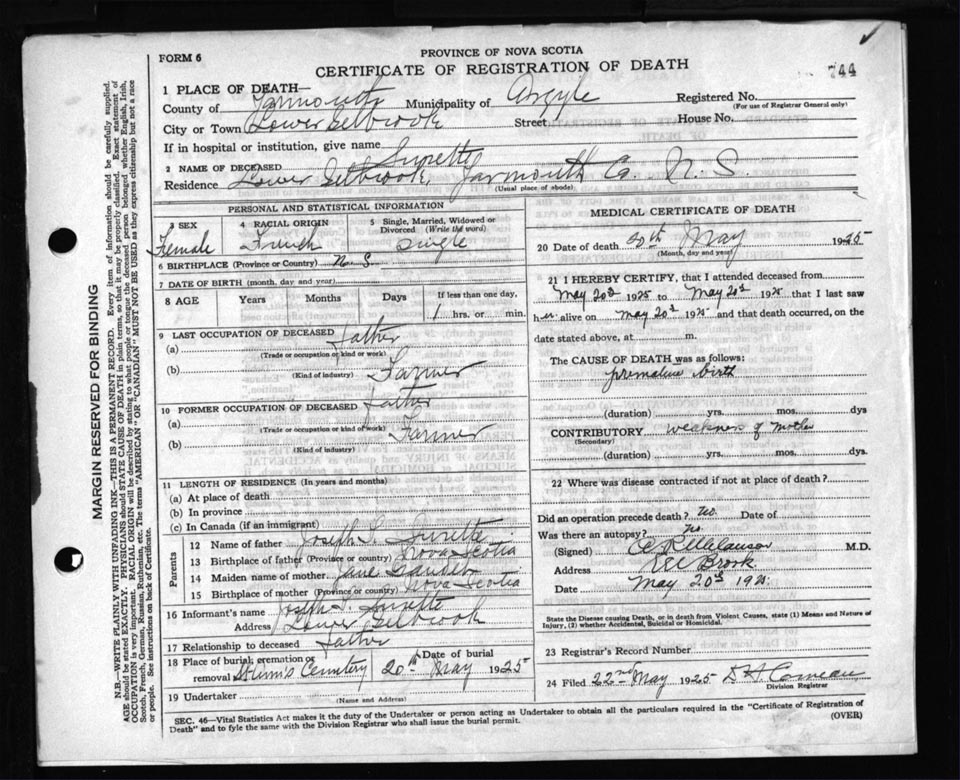 FORM 6
PROVINCE OF NOVA SCOTIA
CERTIFICATE OF REGISTRATION OF DEATH
744
1 PLACE OF DEATH—
County of Yarmouth Municipality of Argyle Registered No.
(For use of Registrar General only)
City or Town Lower Eelbrook Street House No.
If in hospital or institution, give name
2 NAME OF DECEASED Surette
Residence Lower Eelbrook, Yarmouth Co. N. S.
(Usual place of abode)
PERSONAL AND STATISTICAL INFORMATION
3 SEX
Female
4 RACIAL ORIGIN
French
5 Single, Married, Widowed or Divorced (Write the word)
Single
6 BIRTHPLACE (Province or Country) N. S.
7 DATE OF BIRTH (month, day and year)
8 AGE Years Months Days If less than one day,
1 hrs. or min.
9 LAST OCCUPATION OF DECEASED Father
(a)
(Trade or occupation or kind or work)
(b) Farmer
(Kind of industry)
10 FORMER OCCUPATION OF DECEASED Father
(a)
(Trade or occupation or kind of work)
(b) Farmer
(Kind of industry)
11 LENGTH OF RESIDENCE (In years and months)
(a) At place of death
(b) In province
(c) In Canada (if an immigrant)
Parents
12 Name of father Joseph S. Surette
13 Birthplace of father (Province or country) Nova Scotia
14 Maiden name of mother Jane
15 Birthplace of mother (Province or country) Nova Scotia
16 Informant's name Joseph S. Surette
Address Lower Eelbrook
17 Relationship to deceased father
18 Place of burial, cremation or removal Cemetery Date of burial 20th May 1925
19 Undertaker
(Name and Address)
MEDICAL CERTIFICATE OF DEATH
20 Date of death 20th May 1925
(Month, day and year)
21 I HEREBY CERTIFY, that I attended deceased from
May 20th 1925 to May 20th 1925 that I last saw
her alive on May 20th 1925 and that death occurred, on the
date stated above, at m.
The CAUSE OF DEATH was as follows:
premature birth
(duration) yrs. mos. dys
CONTRIBUTORY weakness of mother
(Secondary)
(duration) yrs. mos. dys.
22 Where was disease contracted if not at place of death?
Did an operation precede death? no. Date of
Was there an autopsy? no.
(Signed) M.D.
Address Eel Brook
Date May 20th 1925
State the Disease causing Death, or in death from Violent Causes, state (1) Means and Nature of Injury, (2) whether Accidental, Suicidal or Homicidal.
23 Registrar's Record Number
24 Filed 22nd May 1925 Comeau
Division Registrar
SEC. 46—Vital Statistics Act makes it the duty of the Undertaker or person acting as Undertaker to obtain all the particulars required in the "Certificate of Registration of
Death" and to fyle the same with the Division Registrar who shall issue the burial permit.
(OVER)
MARGIN RESERVED FOR BINDING
N.B.—WRITE PLAINLY WITH UNFADING INK—THIS IS A PERMANENT RECORD. Every item of information should be carefully supplied.
AGE should be stated EXACTLY. PHYSICIANS should STATE CAUSE OF DEATH in plain terms, so that it may be properly classified. Exact statement of
OCCUPATION is very important. RACIAL ORIGIN will be described by stating to what people or tongue the deceased person belonged whether English, Irish,
Scotch, French, German, Russian, Ruthenian, etc. The terms "AMERICAN" OR "CANADIAN" MUST NOT BE USED as they express citizenship but not a race
or people. See instructions on back of Certificate.